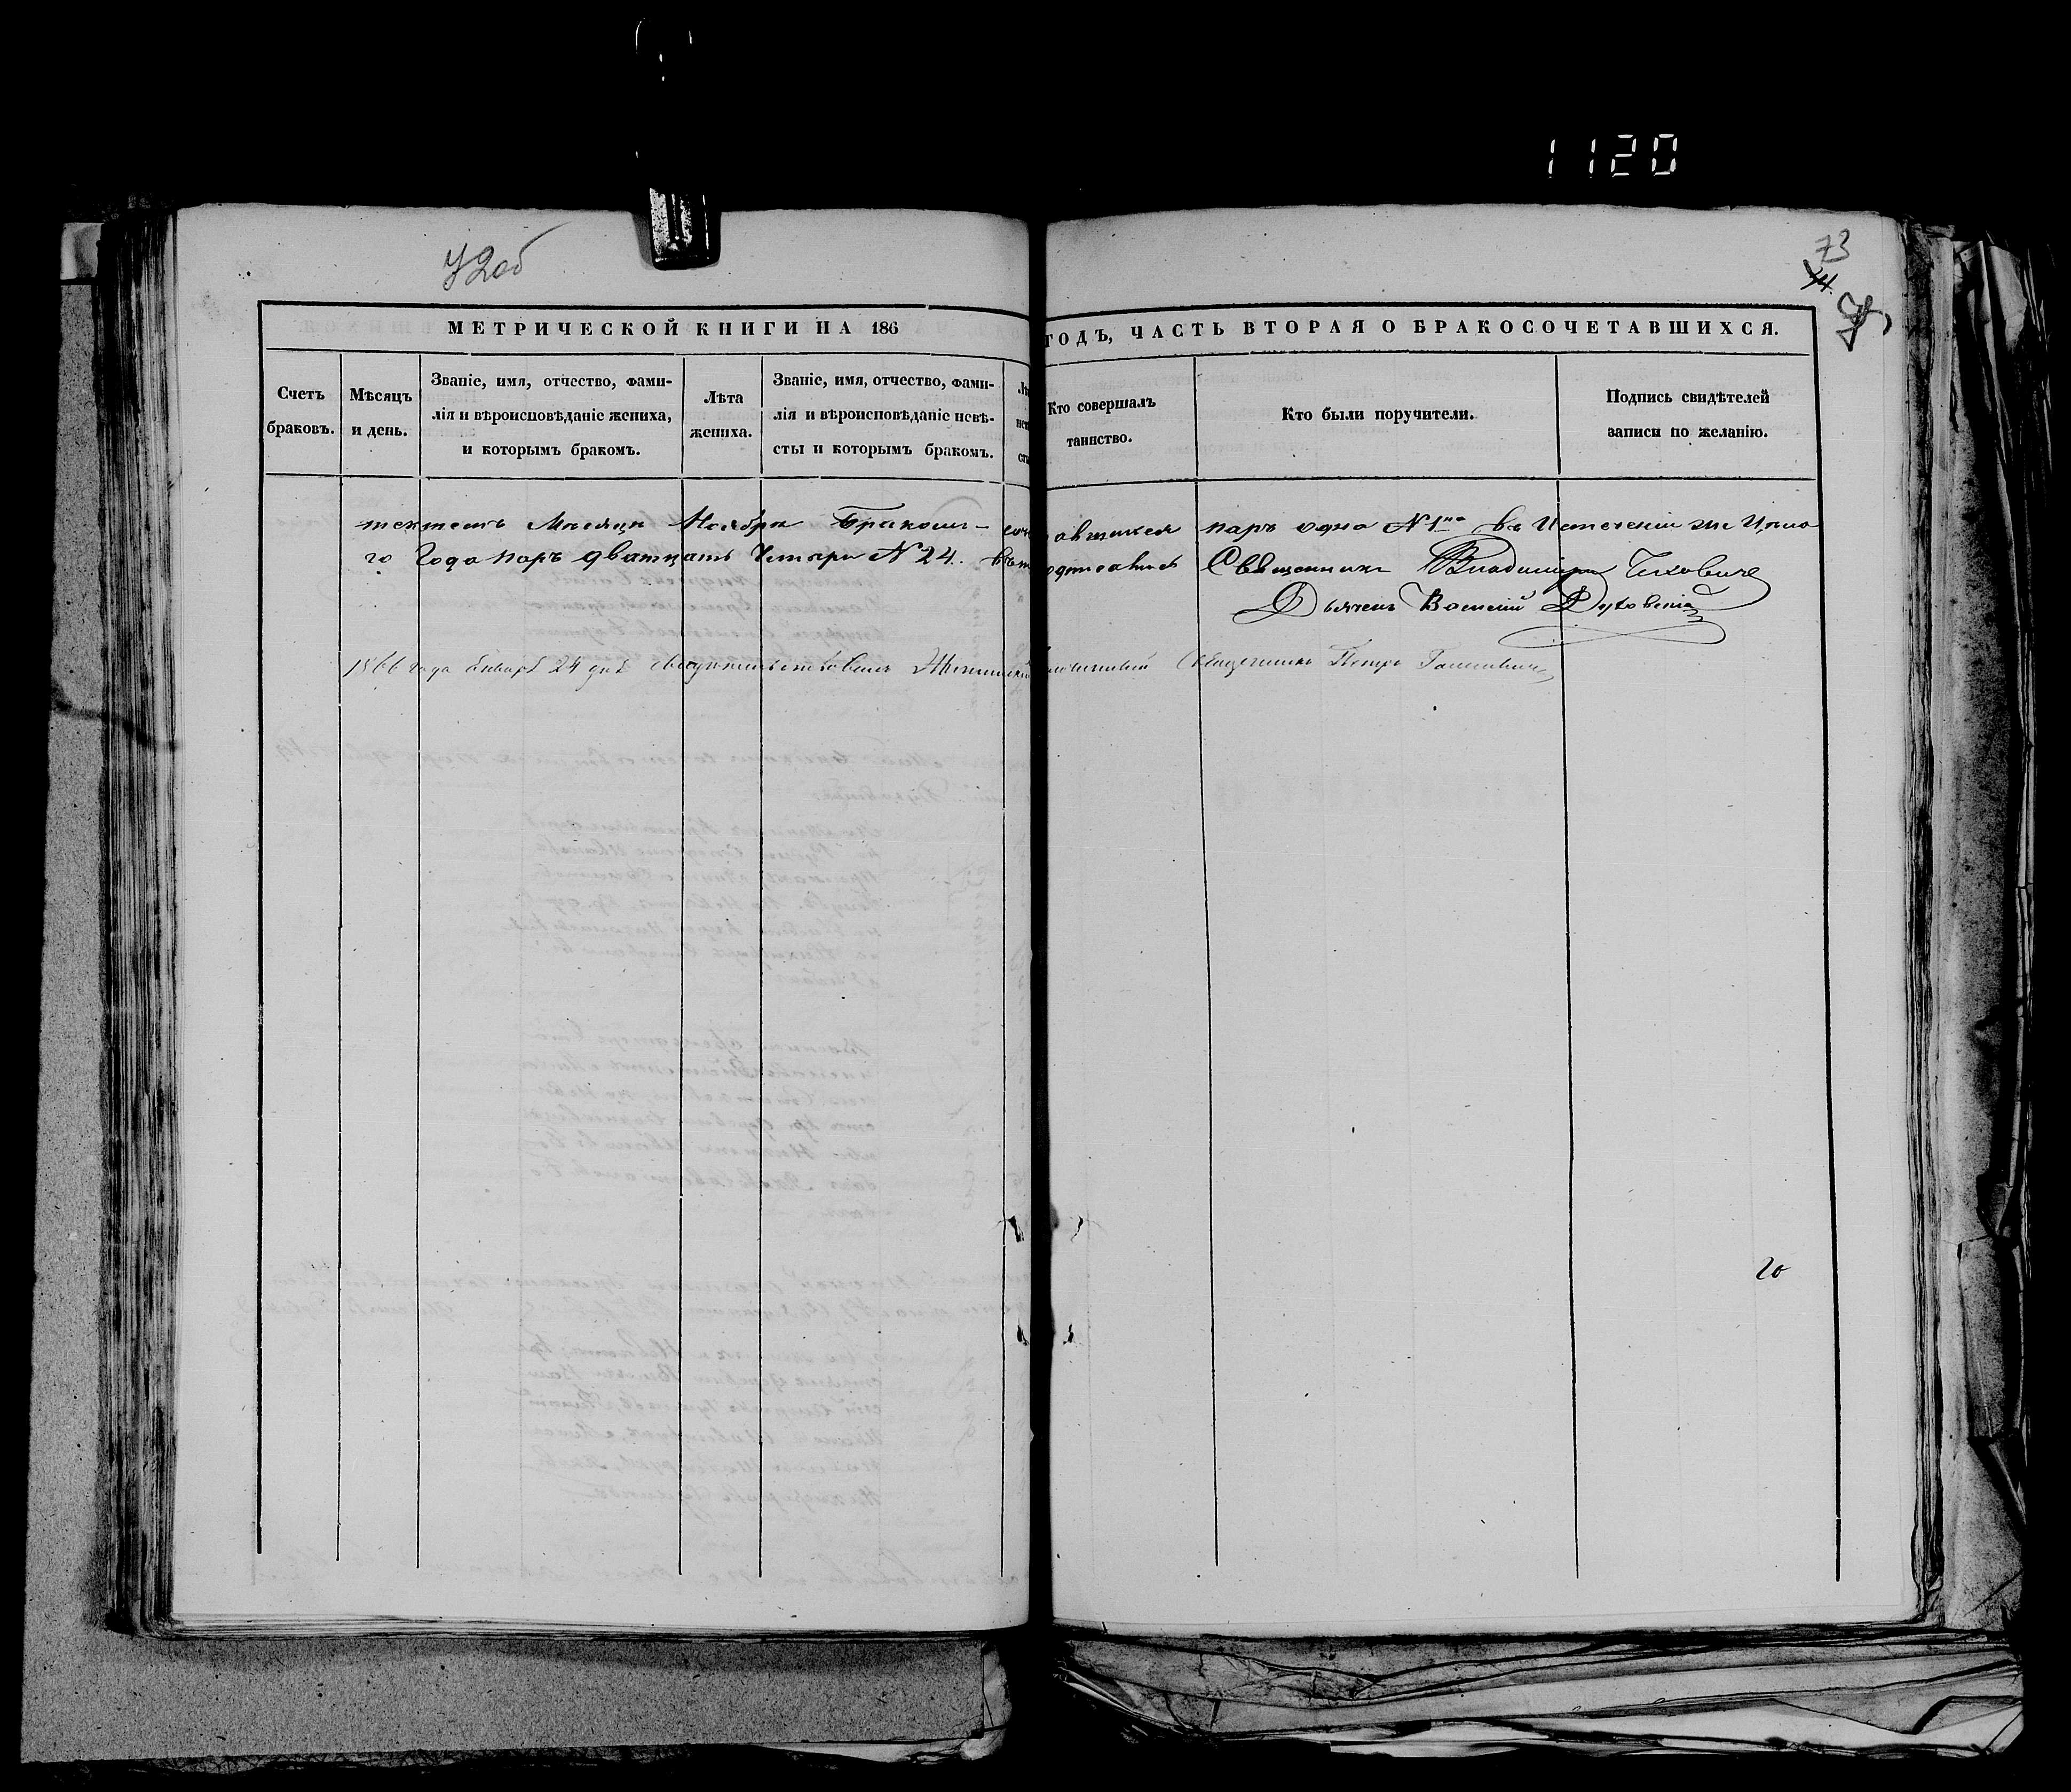 1120
72об
73
74
МЕТРИЧЕСКОЙ КНИГИ НА 186 ГОДЪ, ЧАСТЬ ВТОРАЯ О БРАКОСОЧЕТАВШИХСЯ.
Счетъ браковъ.
Мѣсяцъ и день.
Званіе, имя, отчество, фамилія и вѣроисповѣданіе жениха, и которымъ бракомъ.
Лѣта жениха.
Званіе, имя, отчество, фамилія и вѣроисповѣданіе невѣсты и которымъ бракомъ.
Кто совершалъ таинство.
Кто были поручители.
Подпись свидѣтелей записи по желанію.
Мѣсяцѣ Ноябрѣ Бракомъ- паръ одна №1 въ Истеченіи же Цѣла
го Года паръ дватцать Четыри №24. Священникъ Владимиръ
Дьячекъ Василій
1866 года Января 24 дня Священникъ Петръ
20